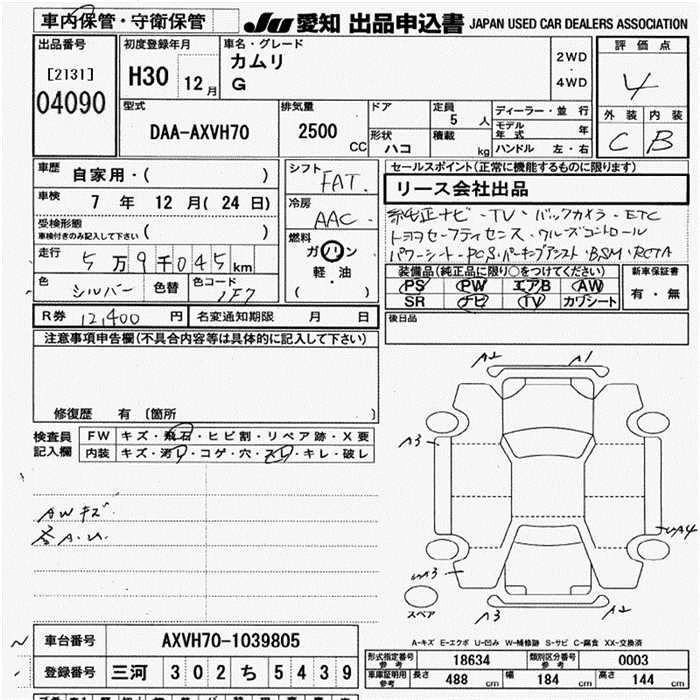 車内保管・守衛保管
JU 愛知 出品申込書 JAPAN USED CAR DEALERS ASSOCIATION
出品番号
[2131]
04090
初度登録年月
H30 12月
車名・グレード
カムリ
G
2WD
・
4WD
評価点
4
外装 内装
C B
型式
DAA-AXVH70
排気量
2500 CC
ドア
形状 ハコ
定員 5 人
積載 kg
ディーラー・並行
モデル年式 年
ハンドル 左・右
車歴 自家用・( )
車検 7 年 12 月(24 日)
受検形態
車検付きのみ記入して下さい ( )
走行 5万9千045 km
色 シルバー 色替 色コード 1F7
シフト FAT.
冷房 AAC
燃料
ガソリン
軽・油
( )
セールスポイント(正常に機能するものに限ります)
リース会社出品
純正ナビ・TV・バックカメラ・ETC
トヨタセーフティセンス・クルーズコントロール
パワーシート・PCS・パーキングアシスト・BSM・RCTA
装備品(純正品に限り○をつけてください)
PS PW エアB AW
SR ナビ TV カワシート
新車保証書
有・無
R券 12,400 円 名変通知期限 月 日
後日品
注意事項申告欄(不具合内容等は具体的に記入して下さい)
修復歴 有 〔箇所 〕
検査員記入欄
FW キズ・飛石・ヒビ割・リペア跡・X要
内装 キズ・汚れ・コゲ・穴・スレ・キレ・破レ
AWキズ
各A.U.
A2 A1
A3
UA4
UA3
A3 A2
スペア
A-キズ E-エクボ U-凹み W-補修跡 S-サビ C-腐食 XX-交換済
車台番号 AXVH70-1039805
登録番号 三河 302 ち 5439
形式指定番号 18634 類別区分番号 0003
車庫証明用参考 長さ 488 cm 幅 184 cm 高さ 144 cm